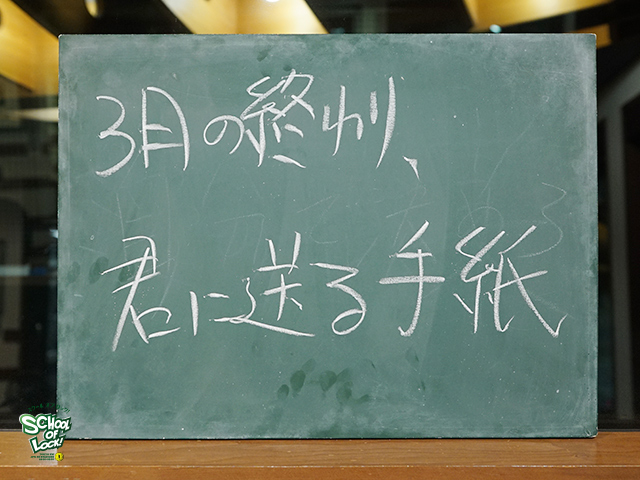 3月の終わり、
君に送る手紙
SCHOOL
OF
LOCK!